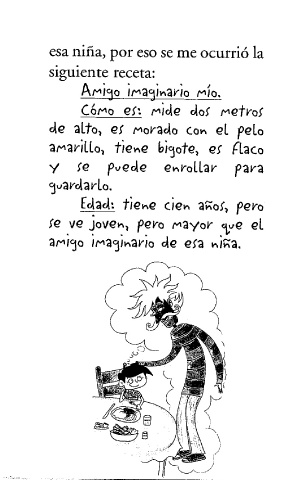 esa niña, por eso se me ocurrió la
siguiente receta:
Amigo imaginario mío.
Cómo es: mide dos metros
de alto, es morado con el pelo
amarillo, tiene bigote, es flaco
y se puede enrollar para
guardarlo.
Edad: tiene cien años, pero
se ve joven, pero mayor que el
amigo imaginario de esa niña.